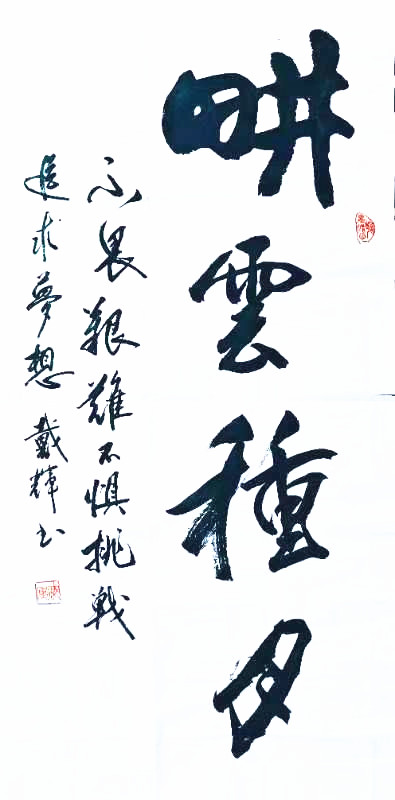 畊雲種月
不畏艱難不惧挑戰
追求夢想 戴輝书